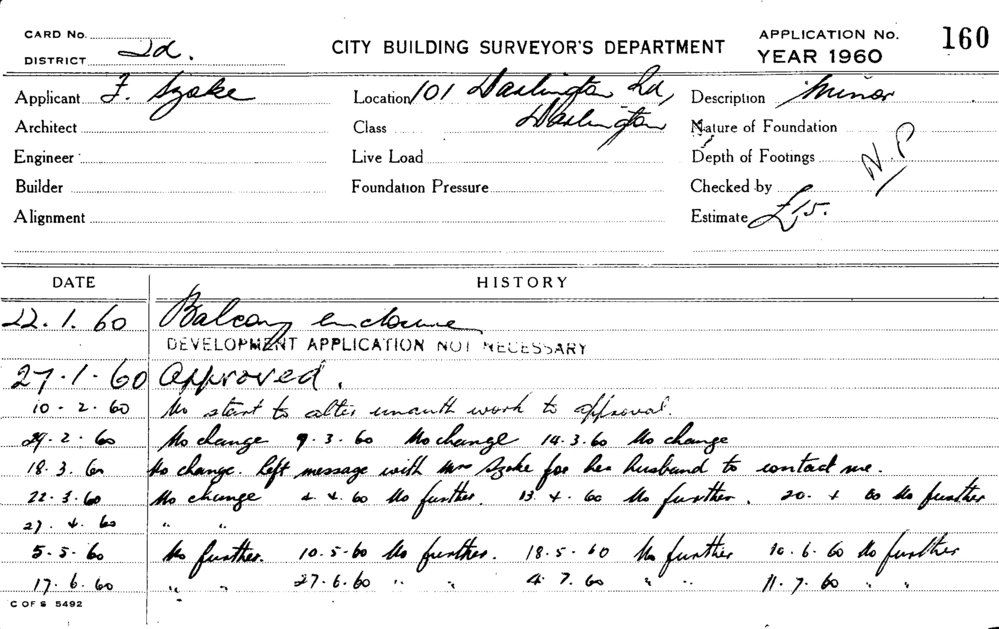 CARD No.
DISTRICT 2d.
CITY BUILDING SURVEYOR'S DEPARTMENT
APPLICATION No. 160
YEAR 1960
Applicant F. Szoke
Location 101 Darlington Rd,
Darlington
Description Minor
Architect
Class
Nature of Foundation
Engineer
Live Load
Depth of Footings
N.P
Builder
Foundation Pressure
Checked by
Alignment
Estimate £15.
DATE HISTORY
22.1.60 Balcony enclosure
DEVELOPMENT APPLICATION NOT NECESSARY
27.1.60 Approved.
10.2.60 No start to alter unauth work to approval.
29.2.60 No change 9.3.60 No change 14.3.60 No change
18.3.60 No change. Left message with Mrs Szoke for her husband to contact me.
22.3.60 No change 4.4.60 No further. 13.4.60 No further. 20.4.60 No further
27.4.60 " "
5.5.60 No further. 10.5.60 No further. 18.5.60 No further 10.6.60 No further
17.6.60 " " 27.6.60 " " 4.7.60 " " 11.7.60 " "
C OF S 5492